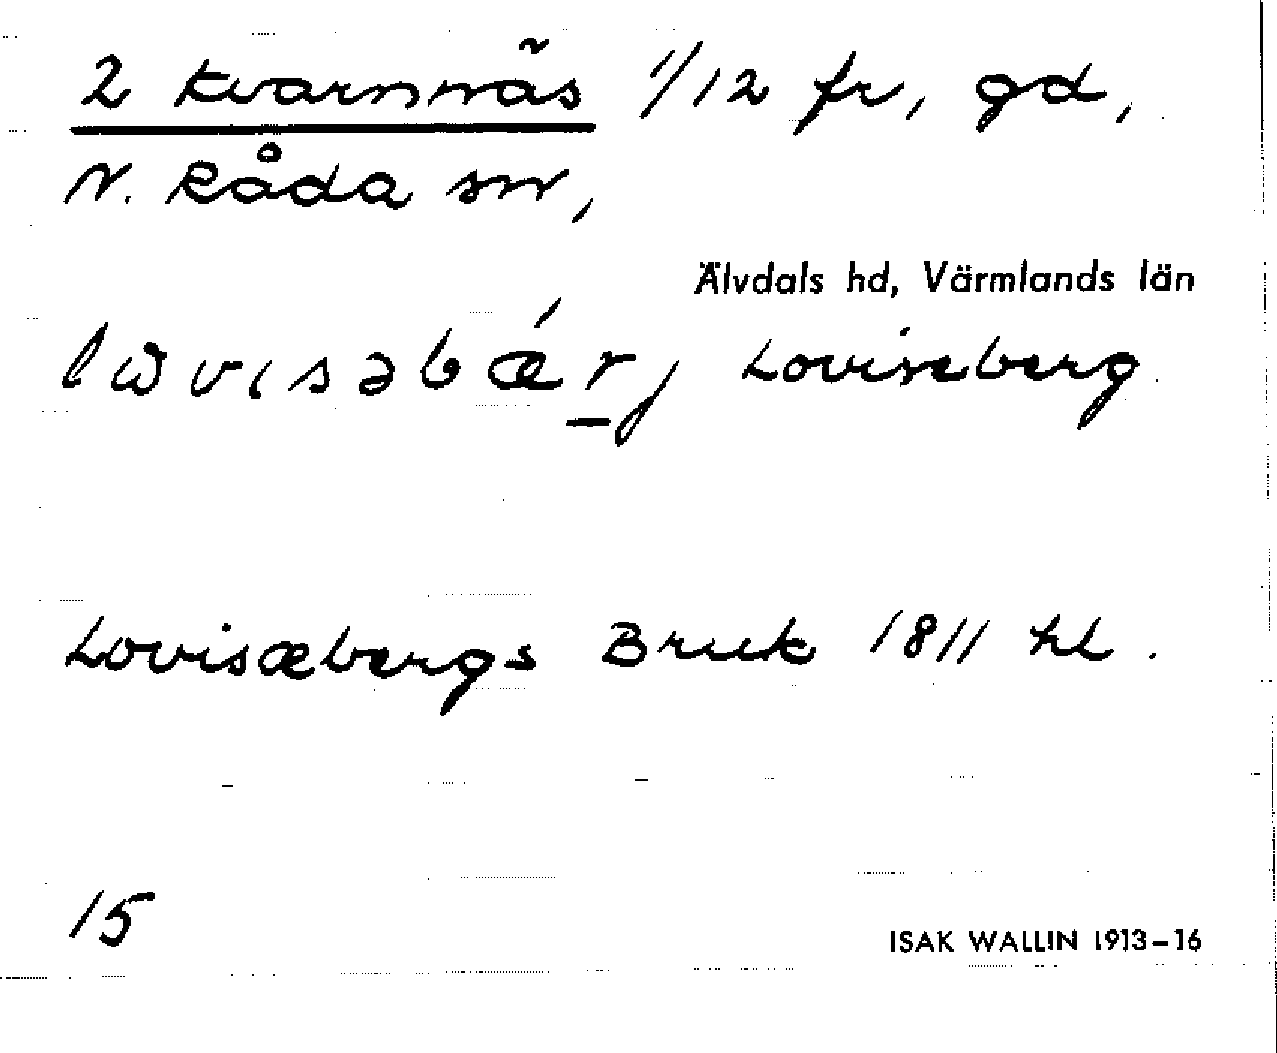 2 Kvarnnäs 1/12 fr, gd,
N. Råda sn,
Älvdals hd, Värmlands län
lɷvɩsəbǽr̲j Loviseberg.
Lovisæbergs Bruk 1811 kl.
15
ISAK WALLIN 1913–16